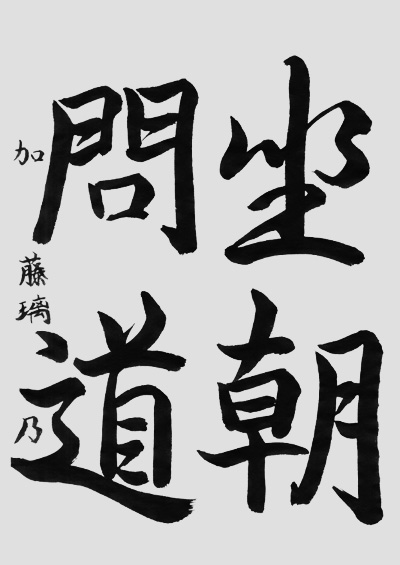 坐朝
問道
加藤璃乃